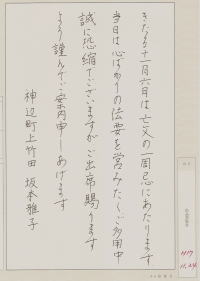 きたる十一月六日は亡父の一周忌にあたります
当日は心ばかりの法要を営みたくご多用中
誠に恐縮でございますがご出席賜ります
よう謹んでご案内申しあげます
神辺町上竹田 坂本雅子
H17
11.24